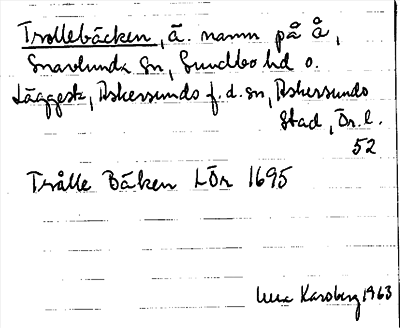 Trollebäcken, ä. namn på å,
Snavlunda sn, Sundbo hd o.
läggest, Askersunds f.d. sn, Askersunds
stad, Ör.l.
52
Trålle Bäcken LÖr 1695
Karsberg 1963